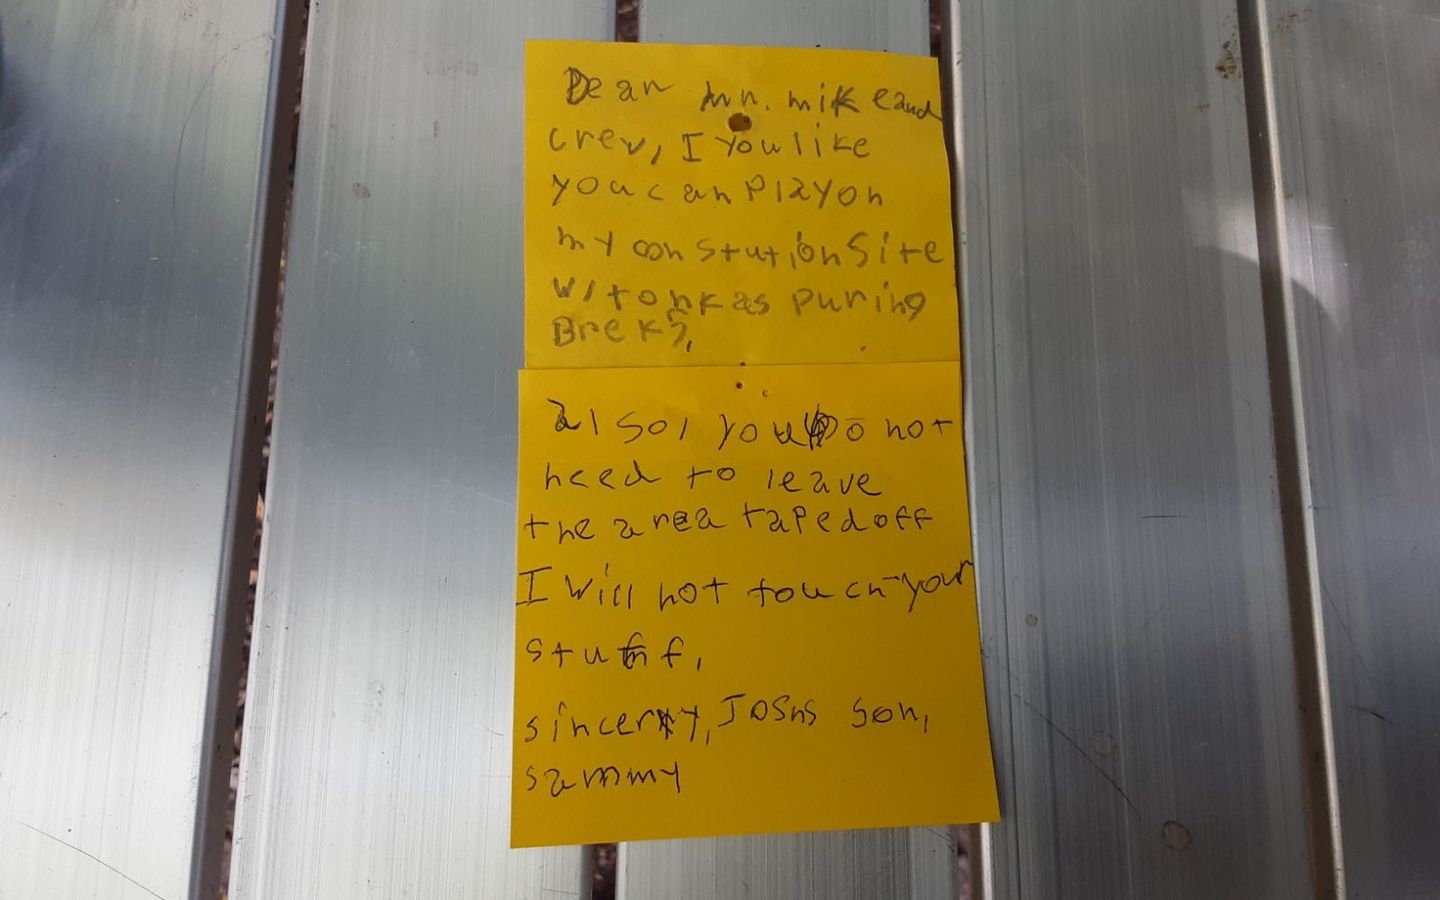 Dear mr. mike and
crev, I You like
you can Playon
my constution Site
w/tonkas During
Breks,
also, you Do not
need to leave
the area taped off
I will not touch your
stuff,
sincerty, Joshs son,
sammy